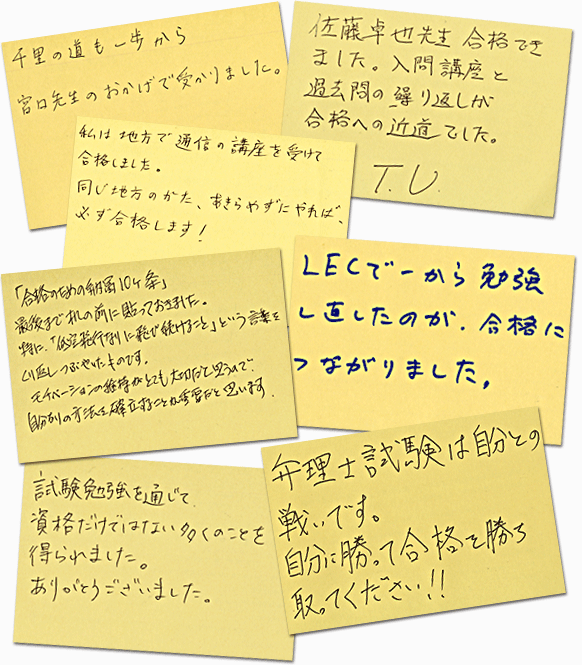 千里の道も一歩から
宮口先生のおかげで受かりました。
佐藤卓也先生 合格でき
ました。入門講座と
過去問の繰り返しが
合格への近道でした。
T.U.
私は地方で通信の講座を受けて
合格しました。
同じ地方のかた、あきらめずにやれば、
必ず合格します!
「合格のための納富10ヶ条」
最後まで机の前に貼っておきました。
特に、「試験発行なりに飛び続けること」という言葉を
くり返しつぶやいたものです。
モチベーションの維持がとても大切だと思うので
自分なりの方法を確立することが重要だと思います。
LECで一から勉強
し直したのが、合格に
つながりました。
試験勉強を通じて
資格だけではない多くのことを
得られました。
ありがとうございました。
弁理士試験は自分との
戦いです。
自分に勝って合格を勝ち
取ってください!!